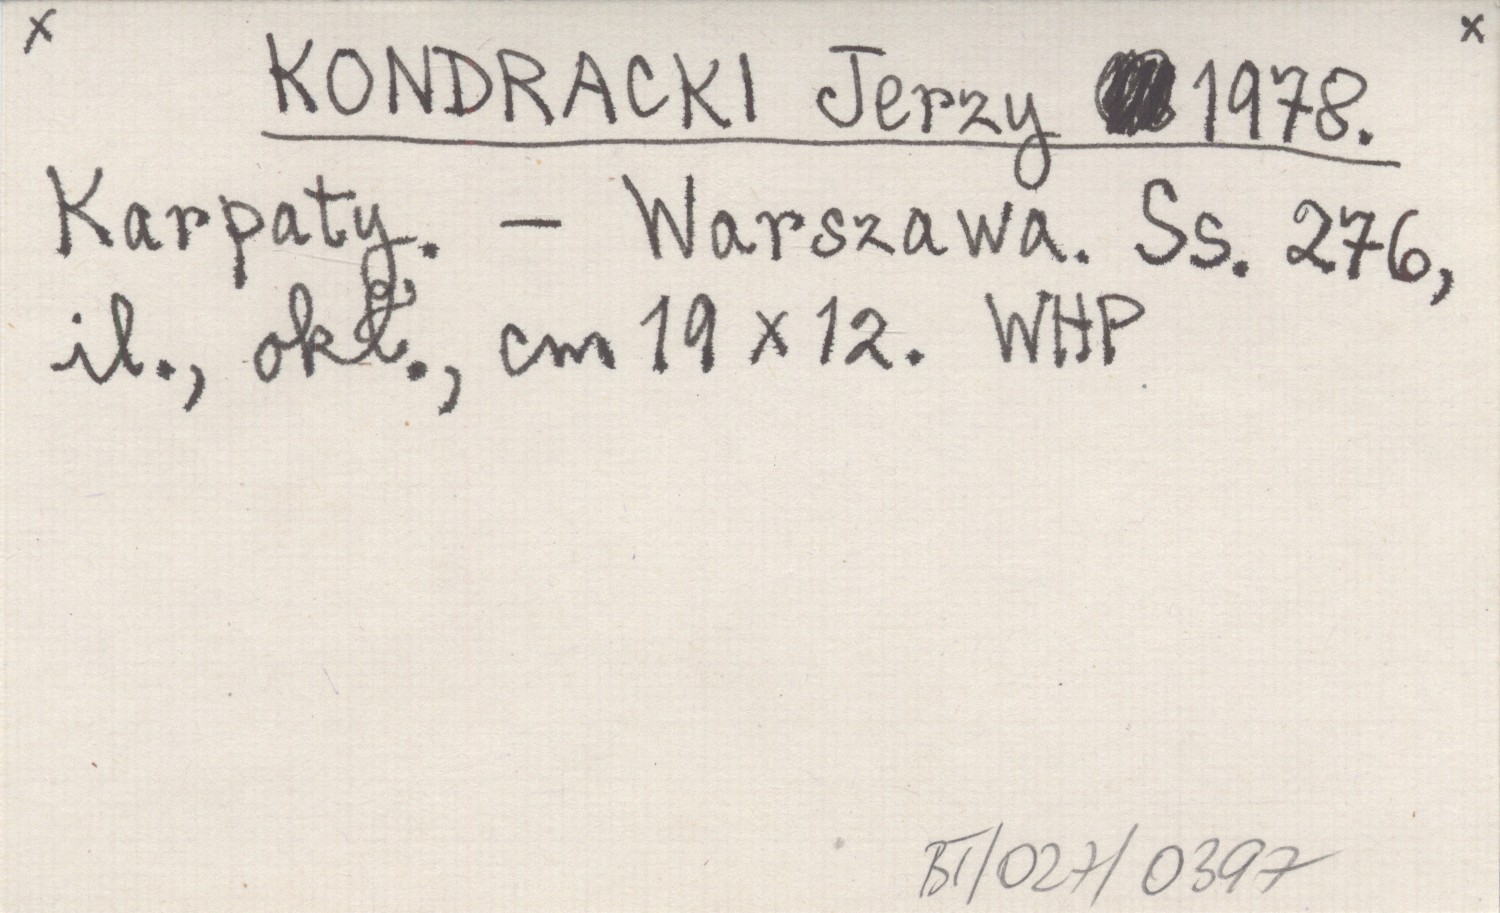 x x
KONDRACKI Jerzy 1978.
Karpaty. — Warszawa. Ss. 276,
il., okł., cm 19 x 12. WHP
BT/027/0397